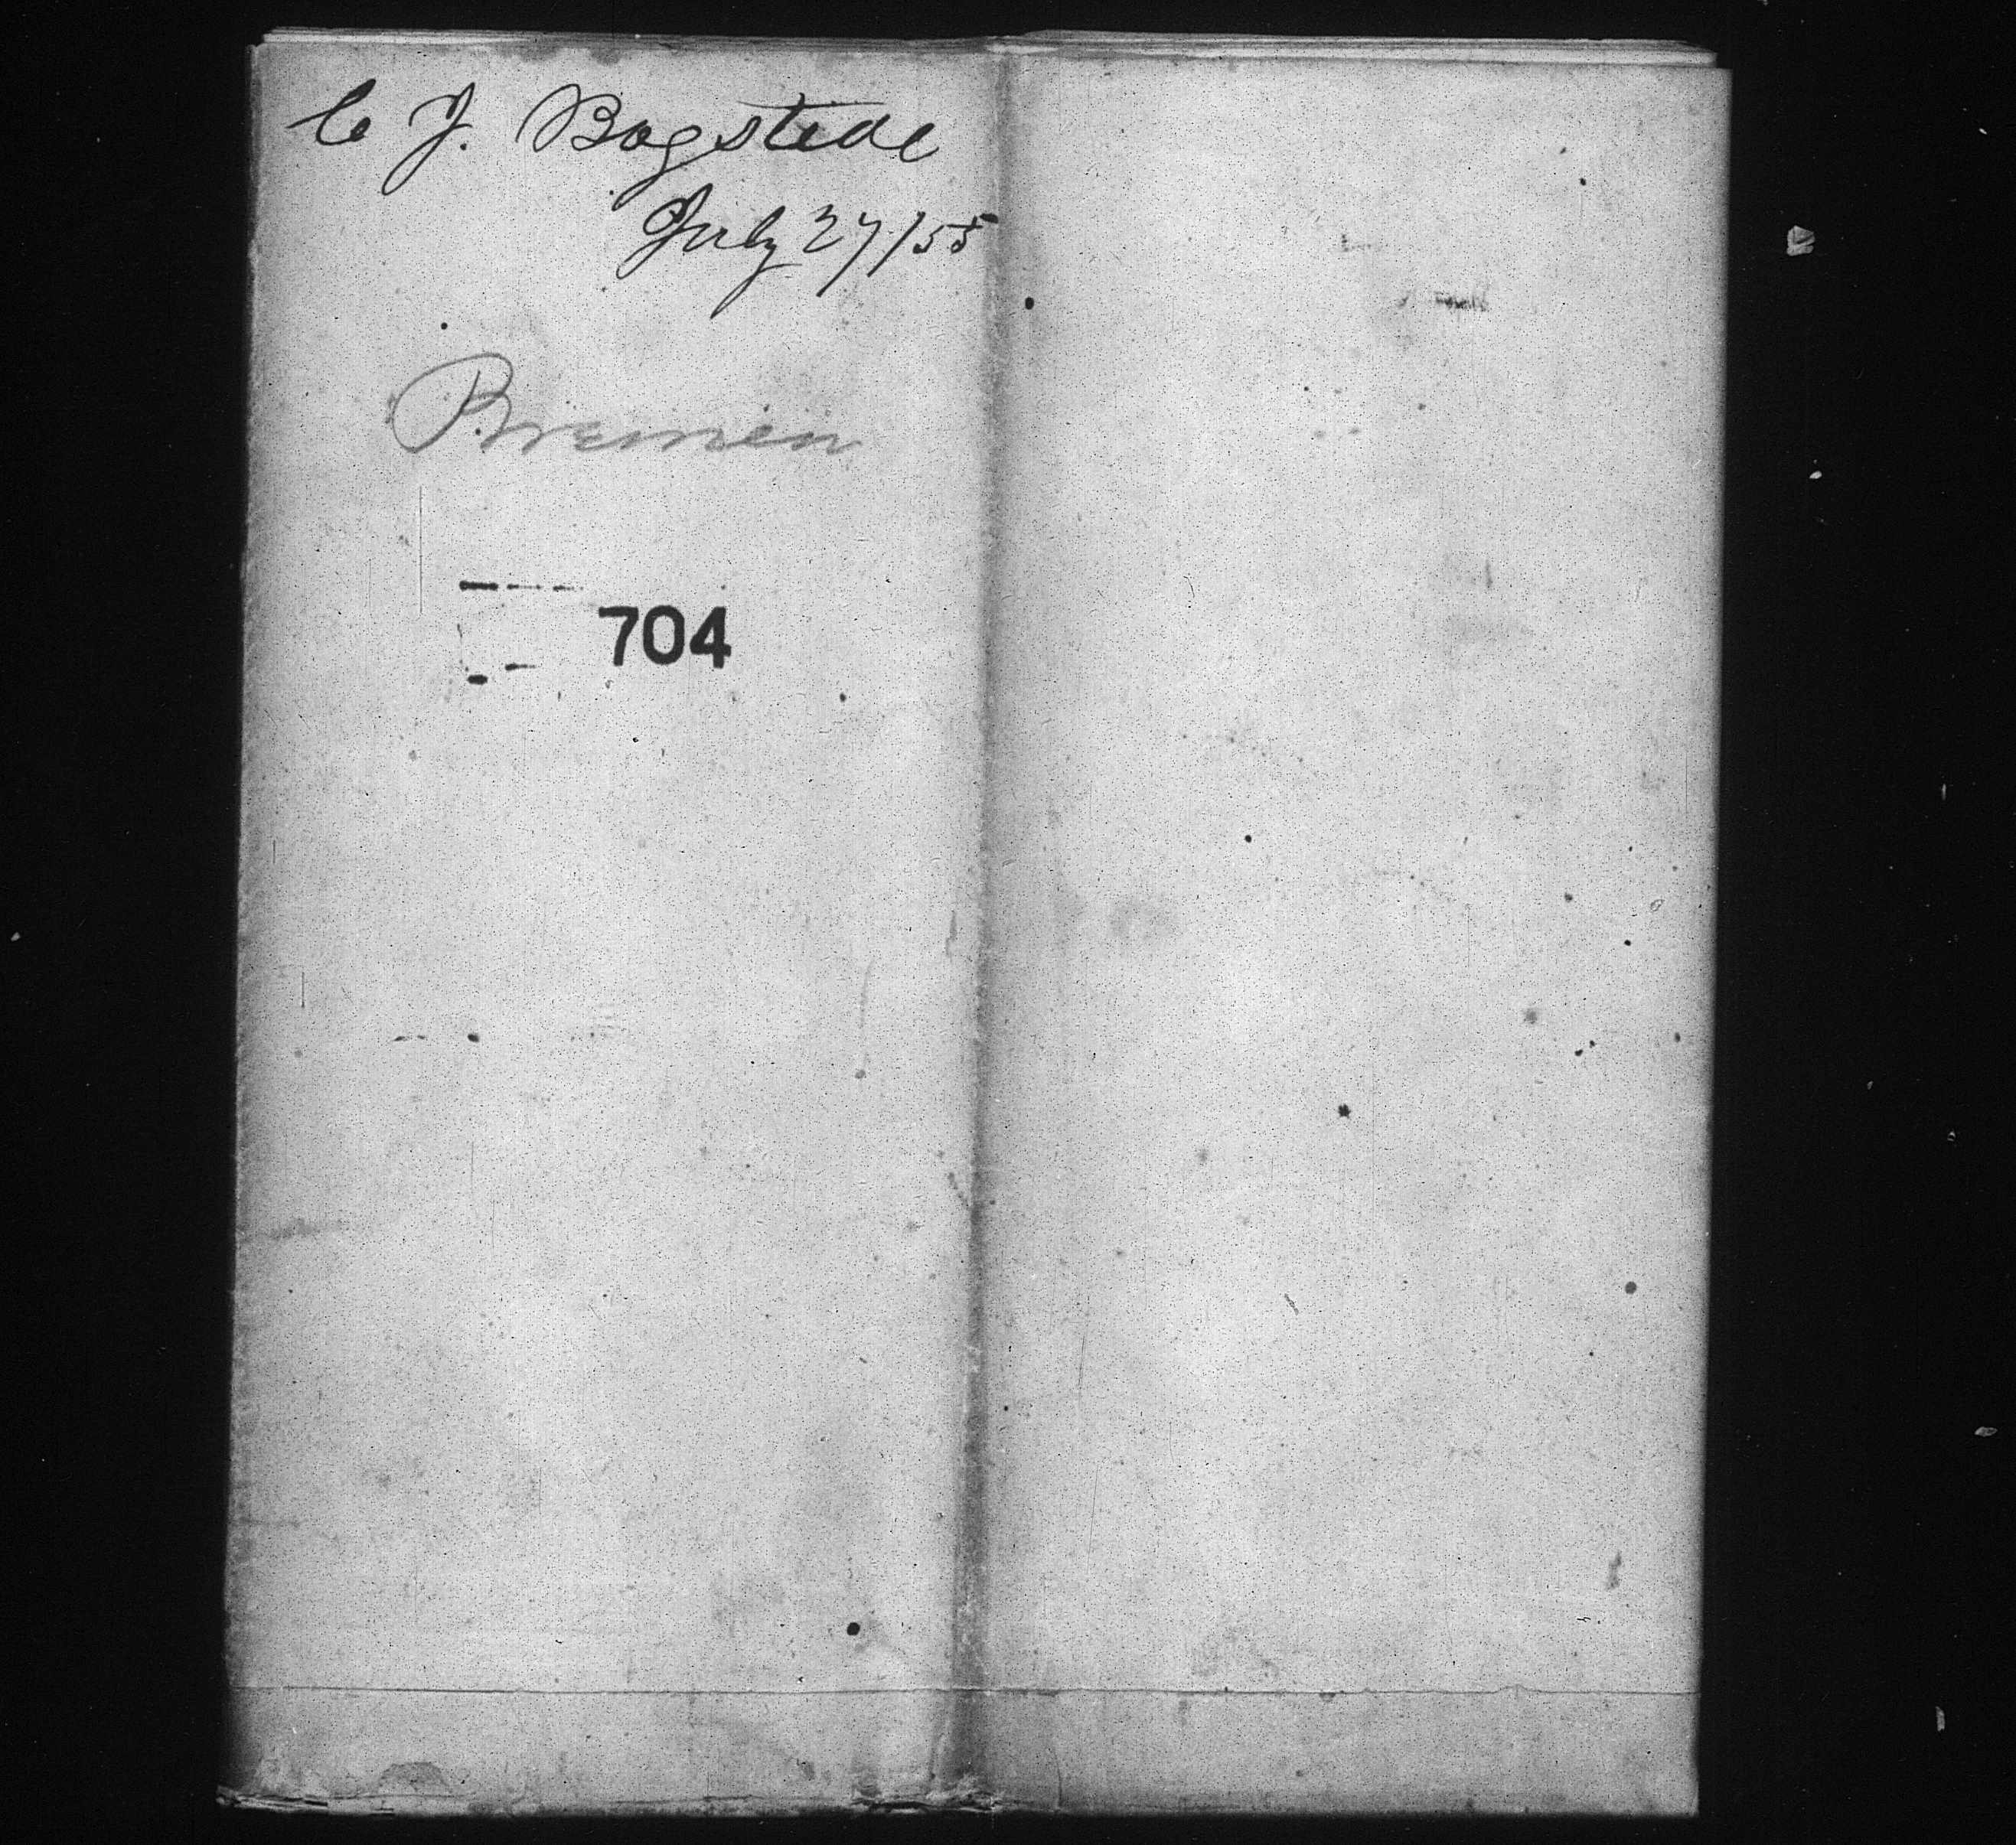 C J. Bogstede
July 27/55
Bremen
704